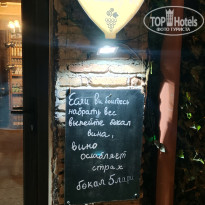 TOP Hotels
ФОТО ТУРИСТА
Если вы боитесь
набрать вес
выпейте бокал
вина,
вино
ослабляет
страх
бокал 5 лари